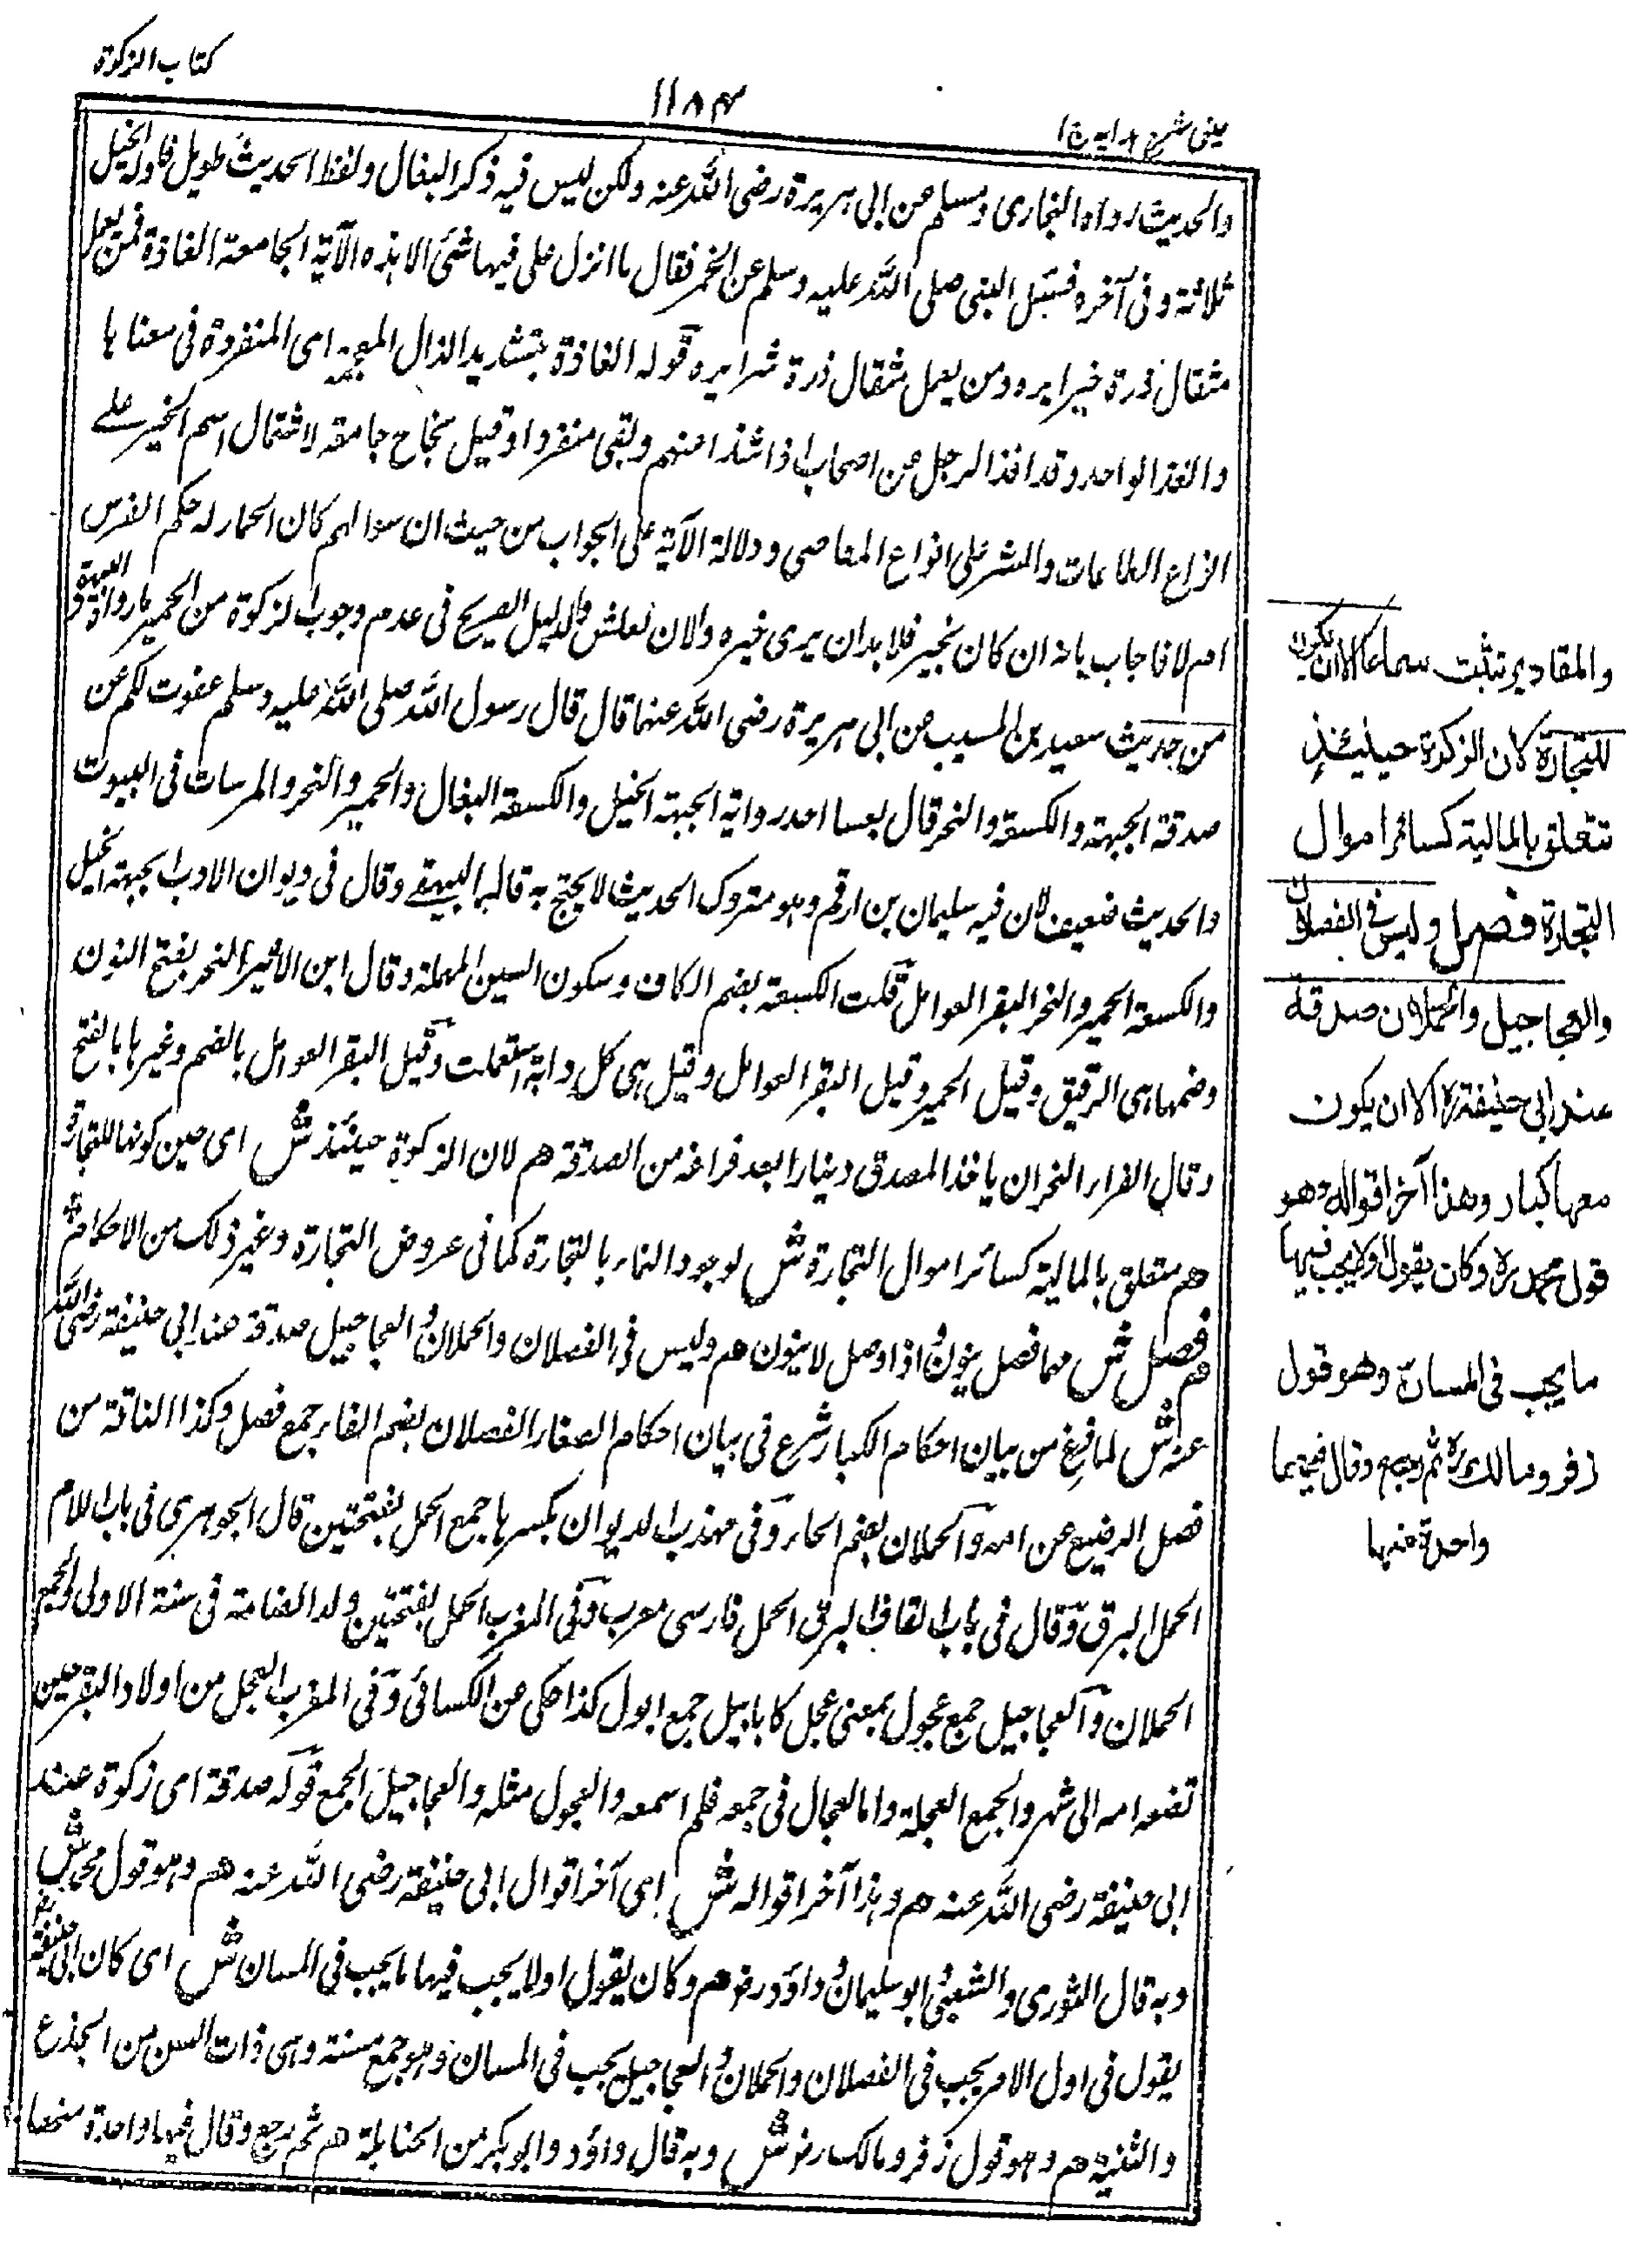 كتاب الزكوة
١١٨٣
عينى شرح هدايه ج ١
والحديث رواه البخارى ومسلم عن ابى هريرة رضى الله عنه ولكن ليس فيه ذكر البغال ولفظ الحديث طويل فاوله الخيل
ثلاثة وفى آخره فسئل النبى صلى الله عليه وسلم عن الحمر فقال ما انزل على فيها شئ الا هذه الآية الجامعة الفاذة فمن يعمل
مثقال ذرة خيرا يره ومن يعمل مثقال ذرة شرا يره قوله الفاذة بتشديد الذال المعجمة اى المنفردة فى معناها
والفذ الواحد وقد افذ الرجل عن اصحابه اذا شذ منهم وبقى منفردا وقيل جامعة لاشتمال اسم الخير على
انواع الطاعات والشر على انواع المعاصى ودلالة الآية على الجواب من حيث ان سوالهم كان الحمار له حكم الفرس
ام لا فاجاب بانه ان كان بخير فلا بد ان يرى خيره والدليل الصريح فى عدم وجوب الزكوة من الحمير ما رواه البيهقى
من حديث سعيد بن المسيب عن ابى هريرة رضى الله عنهما قال قال رسول الله صلى الله عليه وسلم عفوت لكم عن
صدقة الجبهة والكسعة والنخر قال احد رواية الجبهة الخيل والكسعة البغال والحمير والنخر والمرسات فى البيوت
والحديث ضعيف لان فيه سليمان بن ارقم وهو متروك الحديث لا يحتج به قاله البيهقى وقال فى ديوان الادب الجبهة الخيل
والكسعة الحمير والنخر البقر العوامل قلت الكسعة بضم الكاف وسكون السين المهملة وقال ابن الاثير النخر بفتح النون
وضمها هى الرقيق وقيل الحمير وقيل البقر العوامل وقيل هى كل دابة استعملت وقيل البقر العوامل بالضم وغيرها بالفتح
وقال الفراء النخر ان ياخذ المصدق دينارا بعد فراغه من الصدقة هم لان الزكوة حينئذ ش اى حين كونها للتجارة
هم متعلق بالمالية كسائر اموال التجارة ش لوجود النماء بالتجارة كما فى عروض التجارة وغير ذلك من الاحكام ش
هم فصل ش مهما فصل ينون اذا وصل لا ينون هم وليس فى الفصلان والحملان والعجاجيل صدقة عند ابى حنيفة رضى الله
عنه ش لما فرغ من بيان احكام الكبار شرع فى بيان احكام الصغار الفصلان بضم الفاء جمع فصل وكذا الناقة من
فصل الرضيع عن امه والحملان بضم الحاء وفى مهذب الديوان بكسرها جمع الحمل بفتحتين قال الجوهرى فى باب اللام
الحمل البرق وقال فى باب القاف البرق الحمل فارسى معرب وفى المغرب الحمل بفتحتين ولد الضانة فى سنة الاولى والجمع
الحملان والعجاجيل جمع عجول بمعنى عجل كابابيل جمع ابول كذا حكى عن الكسائى وفى المغرب العجل من اولاد البقر حين
تضعه امه الى شهر والجمع العجلة واما العجال فى جمعه فلم اسمعه والعجول مثله والعجاجيل الجمع قوله صدقة اى زكوة عند
ابى حنيفة رضى الله عنه هم وهذا آخر اقواله ش اى آخر اقوال ابى حنيفة رضى الله عنه هم وهو قول محمد ش
وبه قال الثورى والشعبى وابو سليمان وداؤد رضهم وكان يقول اولا يجب فيها ما يجب فى المسان ش اى كان ابى حنيفة رض
يقول فى اول الامر يجب فى الفصلان والحملان والعجاجيل يجب فى المسان وهو جمع مسنة وهى ذات السن من الجذع
والثنية هم وهو قول زفر ومالك رض ش وبه قال داؤد وابو بكر من الحنابلة هم ثم رجع وقال فيها واحدة منها
والمقادير تثبت سماعا الا ان تكون
للتجارة لان الزكوة حينئذ
تتعلق بالمالية كسائر اموال
التجارة فصل وليس فى الفصلان
والعجاجيل والحملان صدقة
عند ابى حنيفة ره الا ان يكون
معها كبار وهذا آخر اقواله وهو
قول محمد ره وكان يقول اولا يجب فيها
ما يجب فى المسان وهو قول
زفر ومالك ره ثم رجع وقال فيها
واحدة منها